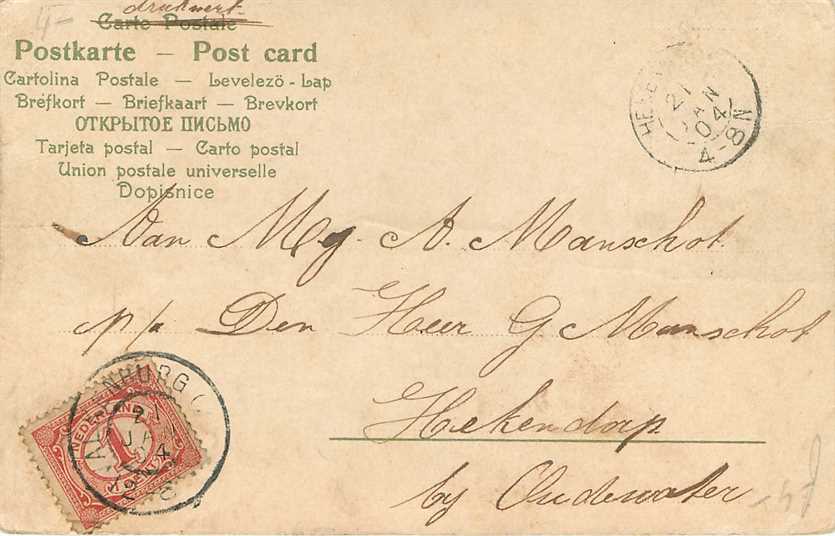 drukwerk
Carte Postale
Postkarte — Post card
Cartolina Postale — Levelezö-Lap
Bréfkort — Briefkaart — Brevkort
ОТКРЫТОЕ ПИСЬМО
Tarjeta postal — Carto postal
Union postale universelle
Dopisnice
21
JAN
04
4-8N
Aan Mej. A. Manschot.
p/a Den Heer G Manschot
Hekendorp
by Oudewater
NEDERLAND
1
CENT
NBURG
21
JAN
04